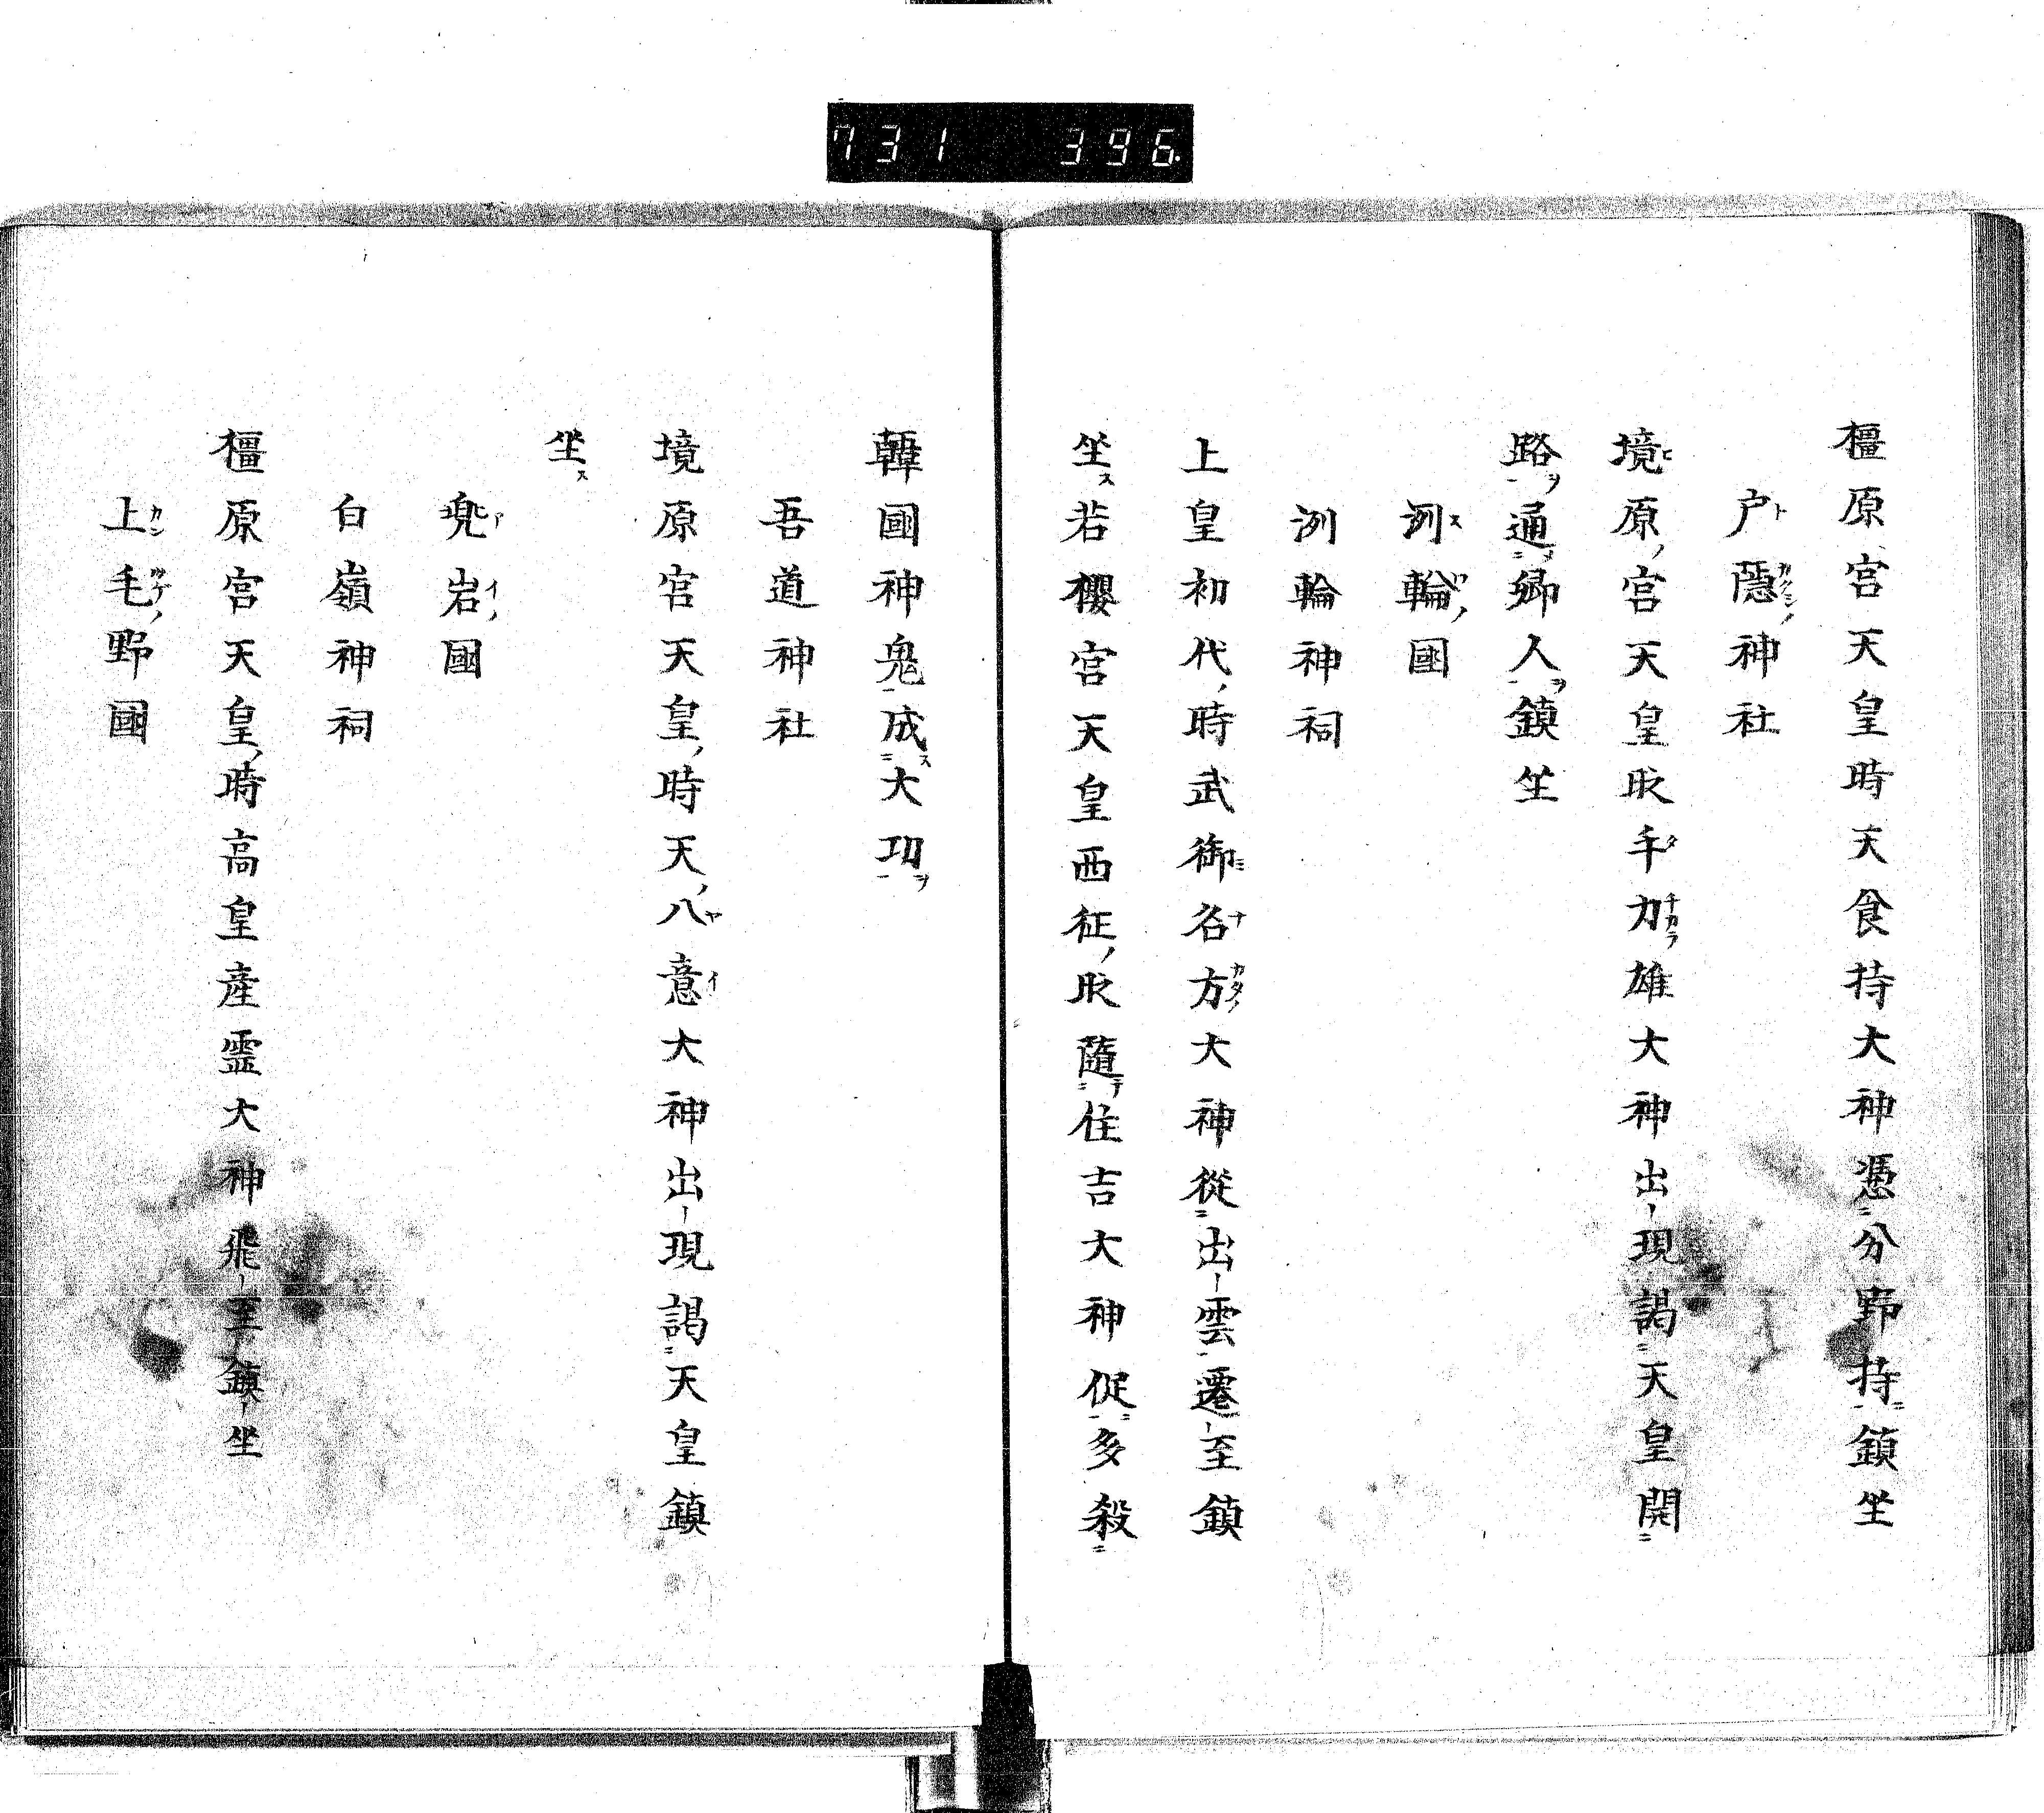 731 396.
橿原宮天皇時天食持大神憑分野持鎮坐
戸隱神社
境原宮天皇时手力雄大神出現謁天皇開
路通鄉人鎮坐
洲輪國
洲輪神祠
上皇初代時武御名方大神從出雲遷至鎮
坐若櫻宮天皇西征时隨住吉大神促多殺
韓國神鬼成大功
吾道神社
境原宮天皇時天八意大神出現謁天皇鎮
坐
兠岩國
白嶺神祠
橿原宮天皇時高皇産霊大神飛至鎮坐
上毛野國